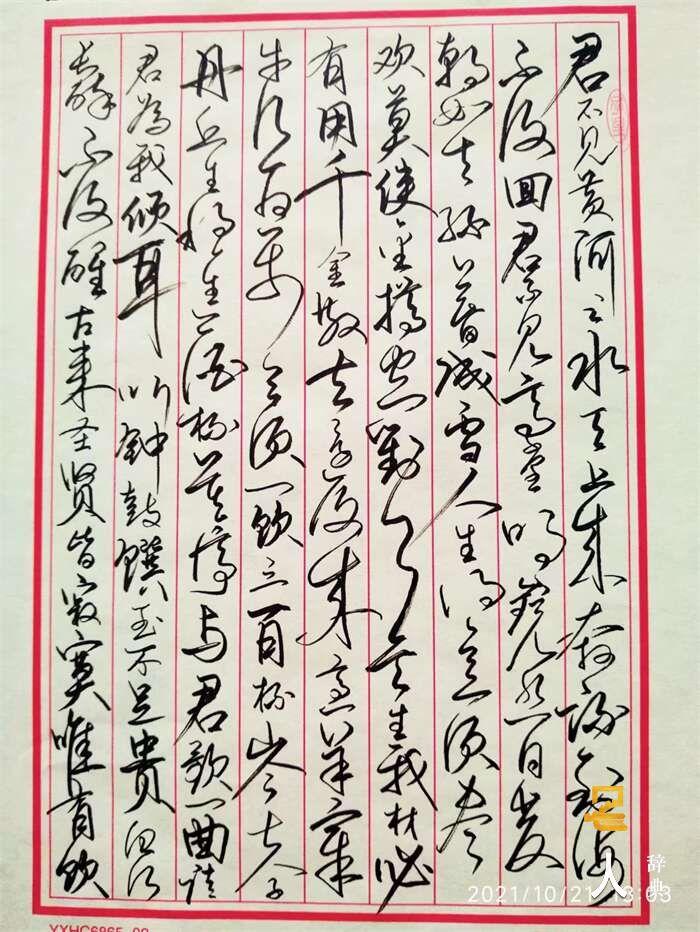 君不见黄河之水天上来奔流到海
不复回君不见高堂明镜悲白发
朝如青丝暮成雪人生得意须尽
欢莫使金樽空对月天生我材必
有用千金散尽还复来烹羊宰
牛且为乐会须一饮三百杯岑夫子
丹丘生将进酒杯莫停与君歌一曲请
君為我倾耳听钟鼓馔玉不足贵但愿
长醉不复醒古来圣贤皆寂寞唯有饮
2021/10/21 13:03
名人辞典
YYHC6865-02